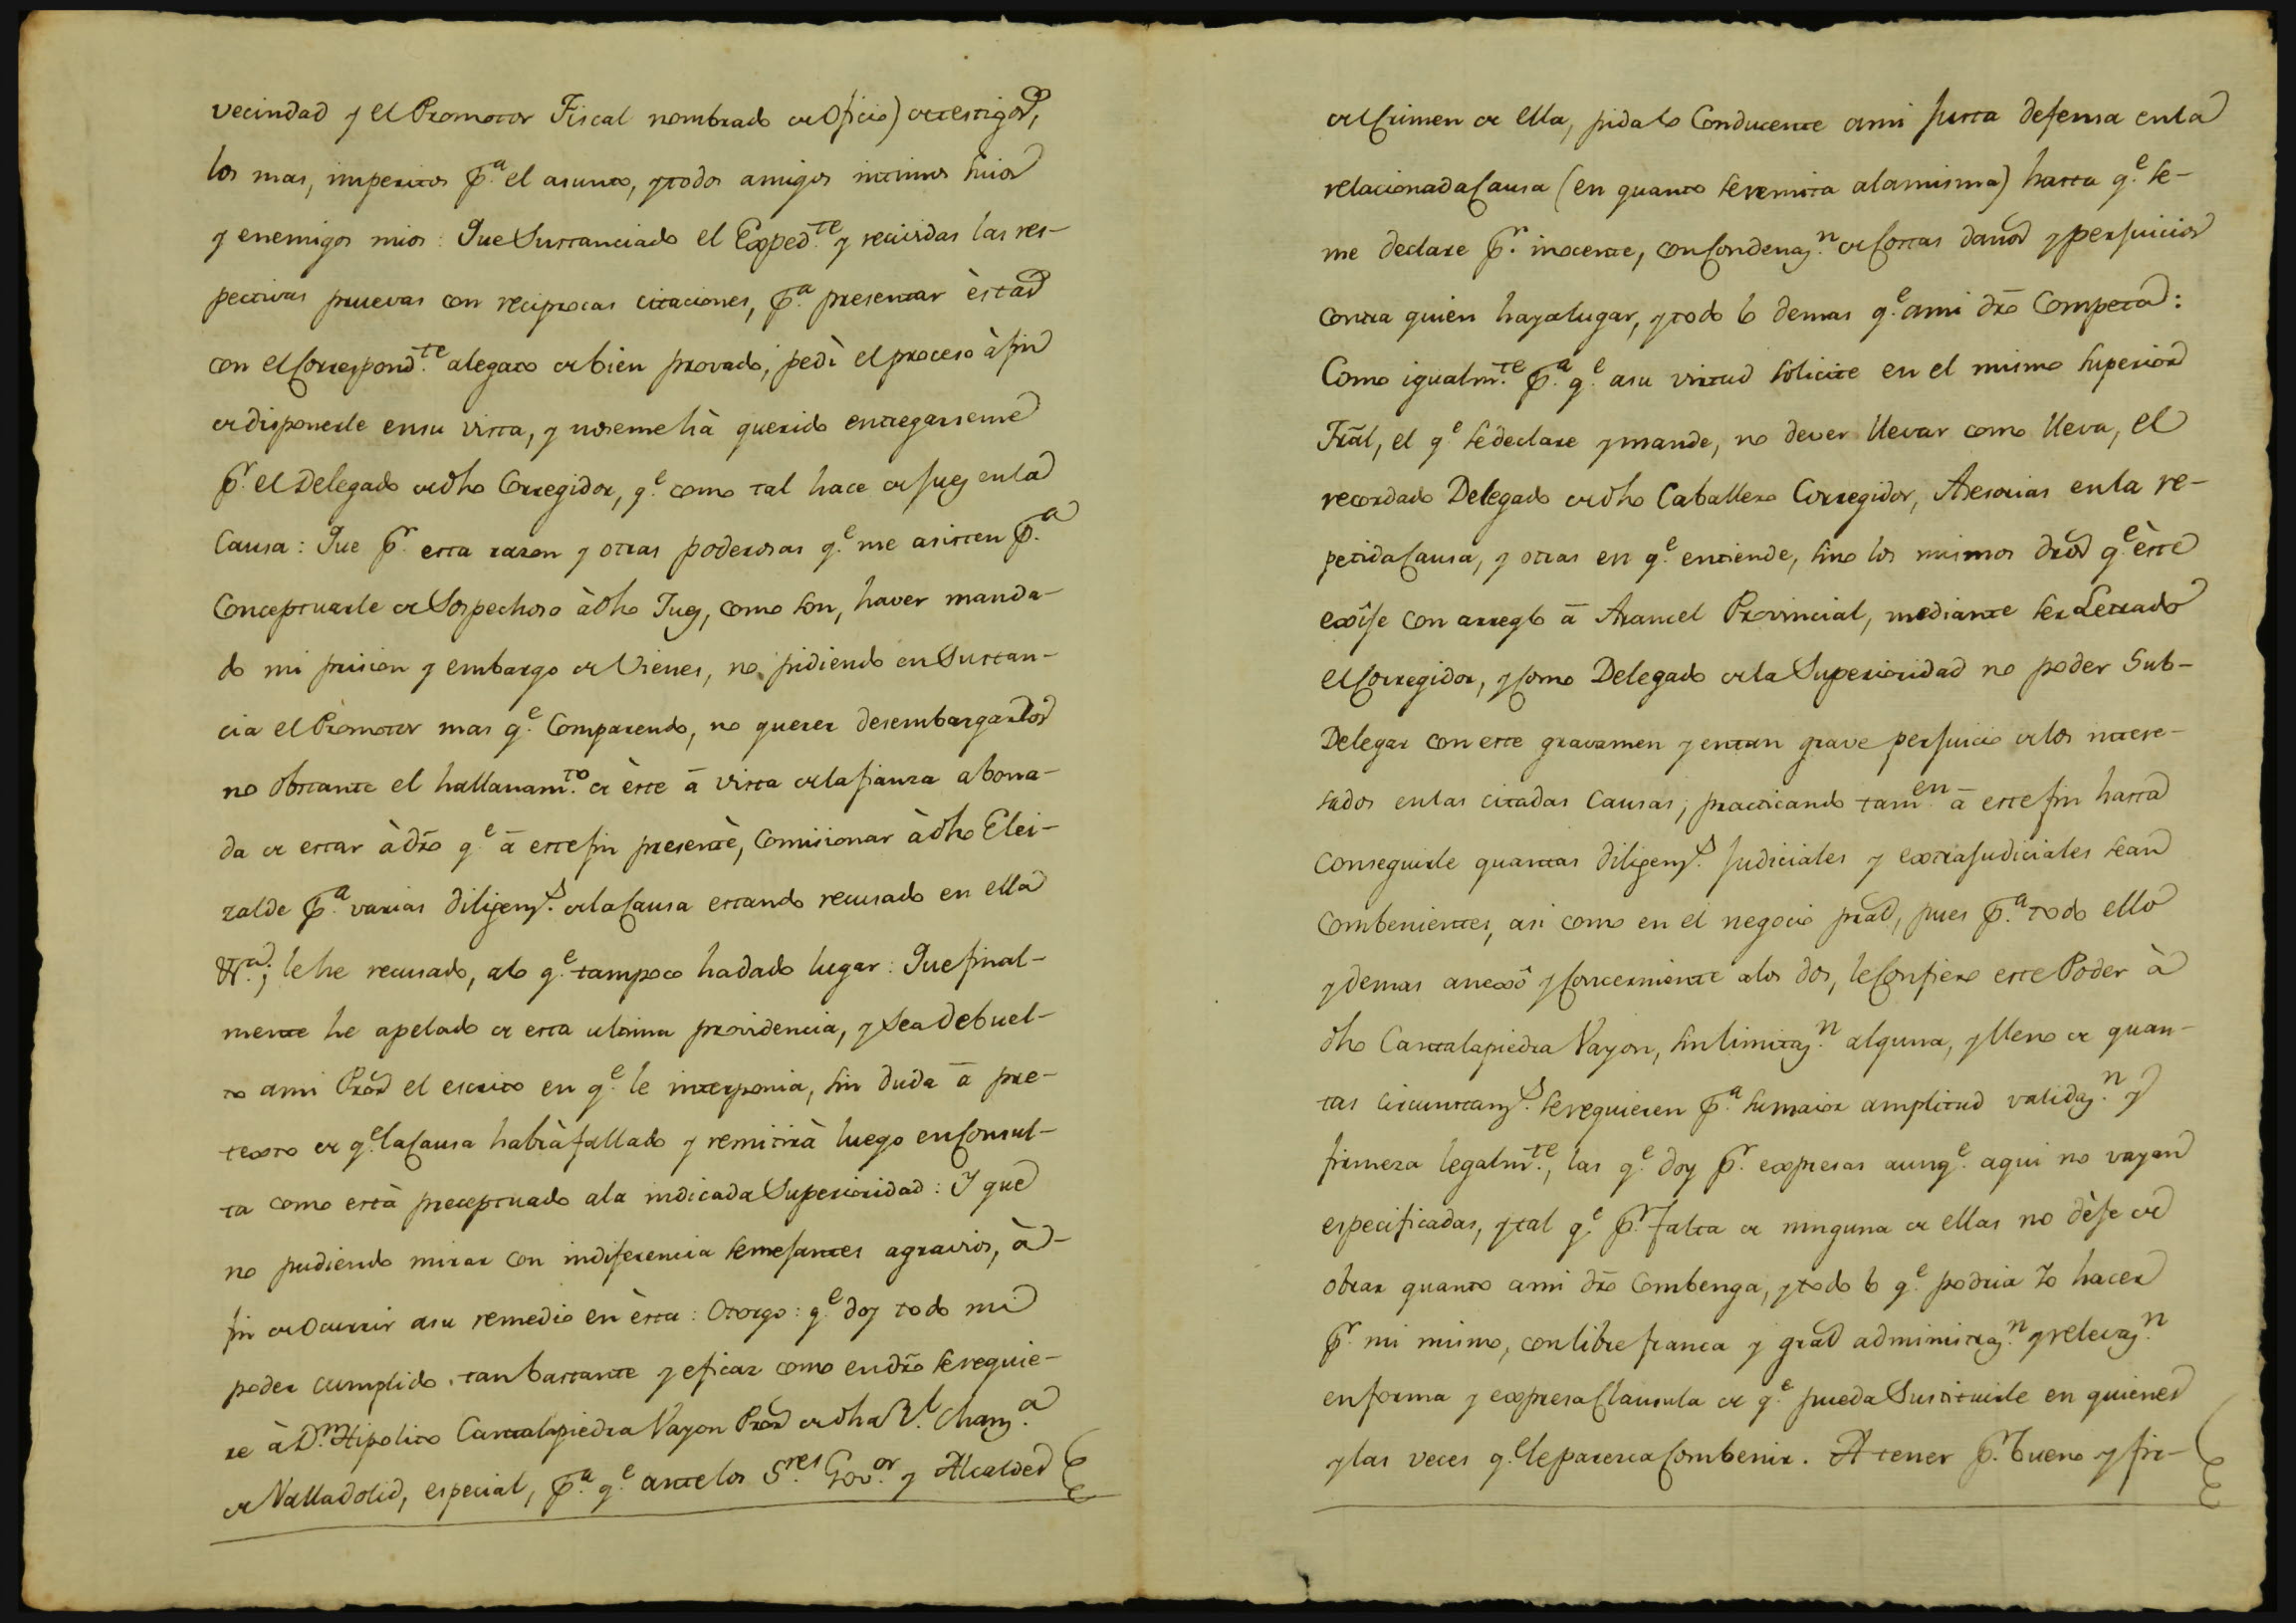 vecindad y el Promotor Fiscal nombrado de Oficio) de testigos,
los mas, imperitos p.ª el asunto, y todos amigos intimos suios
y enemigos mios: Que Sustanciado el Exped.te y recividas las res-
pectivas pruevas con reciprocas citaciones, p.ª presentar èstas
con el Correspond.te alegato de bien provado, pedì el proceso à fin
de disponerle en su vista, y no se me hà querido entregarseme
p.r el Delegado de dho Corregidor, q.e como tal hace de Juez en la
Causa: Que p.r esta razon y otras poderosas q.e me asisten p.ª
Conceptuarle de Sospechoso à dho Juez, como son, haver manda-
do mi prision y embargo de Vienes, no pidiendo en Sustan-
cia el Promotor mas q.e Comparendo, no querer desembargarlos
no obstante el hallanam.to de èste ā vista de la fianza abona-
da de estar à dr̃o q.e ā este fin presentè, Comisionar à dho Elei-
zalde p.ª varias diligenz.s de la Causa estando recusado en ella
le he recusado, alo q.e tampoco ha dado lugar: Que final-
mente he apelado de esta ultima providencia, y se a Debuel-
to ami Pror el escrito en q.e le interponia, sin duda ā pre-
texto de q.e la Causa habrà fallado y remitirà luego en Consul-
ta como està preceptuado ala indicada Superioridad: Y que
no pudiendo mirar con indiferencia semejantes agravios, à-
fin de Ocurrir asu remedio en èsta: Otorgo: q.e doy todo mi
poder cumplido, tan bastante y eficaz como en dr̃o se requie-
re à D.n Hipolito Cantalapiedra Vayon Pror de dha R.l Chanz.ª
de Valladolid, especial, p.ª q.e ante los S.res Gov.or y Alcaldes
del Crimen de ella, pida lo Conducente ami Justa defensa en la
relacionada Causa (en quanto se remita ala misma) hasta q.e se-
me declare p.r inocente, con Condenaz.n de Costas daños y perjuicios
contra quien haya lugar, y todo lo demas q.e ami dr̃o Competa:
Como igualm.te p.ª q.e asu virtud solicite en el mismo superior
Tral, el q.e se declare y mande, no dever llevar como lleva, el
recordado Delegado de dho Caballero Corregidor, Asesorias en la re-
petida Causa, y otras en q.e entiende, sino los mismos dros q.e èste
exîje con arreglo ā Arancel Provincial, mediante ser Letrado
el Corregidor, y como Delegado de la Superioridad no poder Sub-
Delegar con este gravamen y en tan grave perjuicio de los intere-
sados en las citadas Causas; practicando tam.en ā este fin hasta
conseguirle quantas diligenz.s Judiciales y extrajudiciales sean
combenientes, asi como en el negocio pral, pues p.ª todo ello
y demas anexô y Concerniente alos dos, le Confiero este Poder à
dho Cantalapiedra Vayon, sin limitaz.n alguna, y lleno de quan-
tas circunstanz.s se requieren p.ª su maior amplitud validaz.n y
firmeza legalm.te, las q.e doy p.r expresas aunq.e aqui no vayan
especificadas, y tal q.e p.r falta de ninguna de ellas no dèje de
obrar quanto ami dr̃o Combenga, y todo lo q.e podria Yo hacer
p.r mi mismo, con libre franca y gral administraz.n y relevaz.n
en forma y expresa Clausula de q.e pueda Sustituirle en quienes
y las veces q.e le parezca Combenir. A tener p.r bueno y fir-